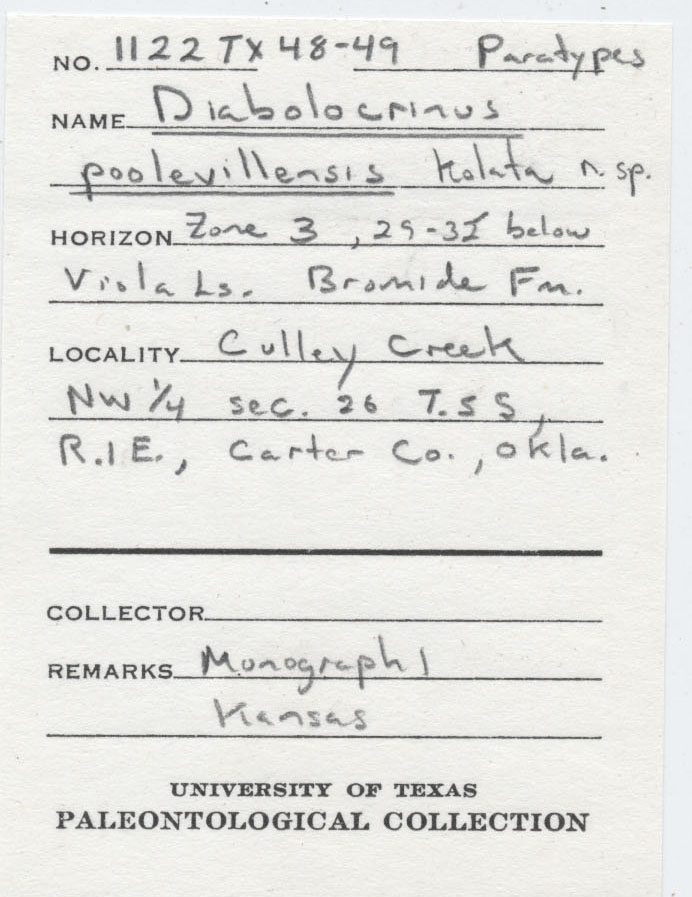 NO. 1122 TX 48-49 Paratypes
NAME Diabolocrinus
poolevillensis Kolata n. sp.
HORIZON Zone 3, 29-32' below
Viola Ls. Bromide Fm.
LOCALITY Culley Creek
NW 1/4 sec. 26 T.5 S,
R.1 E., Carter Co., Okla.
COLLECTOR
REMARKS Monograph 1
Kansas
UNIVERSITY OF TEXAS
PALEONTOLOGICAL COLLECTION